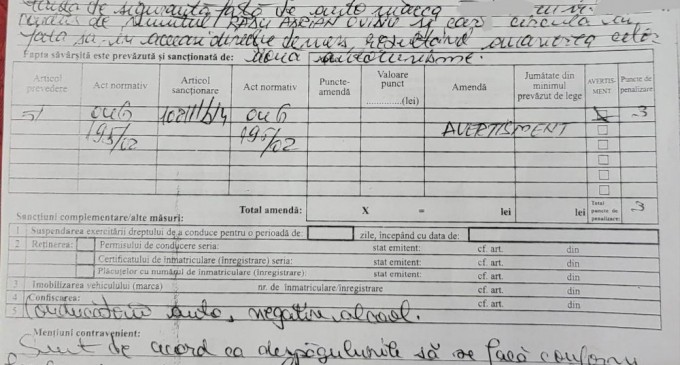 de siguranță față de auto marca
condus de numitul RAȘU ADRIAN OVIDIU și care circula în
fața sa în aceeași direcție de mers, rezultând avarierea celor
Fapta săvârșită este prevăzută și sancționată de: două autoturisme.
Articol prevedere Act normativ Articol sancționare Act normativ Puncte-amendă Valoare punct ..............(lei) Amendă Jumătate din minimul prevăzut de lege AVERTIS-MENT Puncte de penalizare
51 OUG 102/1/b/4 OUG X 3
195/02 195/02 AVERTISMENT
Total amendă: X = lei lei Total puncte de penalizare: 3
Sancțiuni complementare/alte măsuri:
1 Suspendarea exercitării dreptului de a conduce pentru o perioadă de: zile, începând cu data de:
2 Reținerea: Permisului de conducere seria: stat emitent: cf. art. din
Certificatului de înmatriculare (înregistrare) seria: stat emitent: cf. art. din
Plăcuțelor cu numărul de înmatriculare (înregistrare): stat emitent: cf. art. din
3 Imobilizarea vehiculului (marca) nr. de înmatriculare/înregistrare cf. art. din
4 Confiscarea: cf. art. din
5 Conducătorii auto, negativ alcool.
Mențiuni contravenient:
Sunt de acord ca despăgubirile să se facă conform